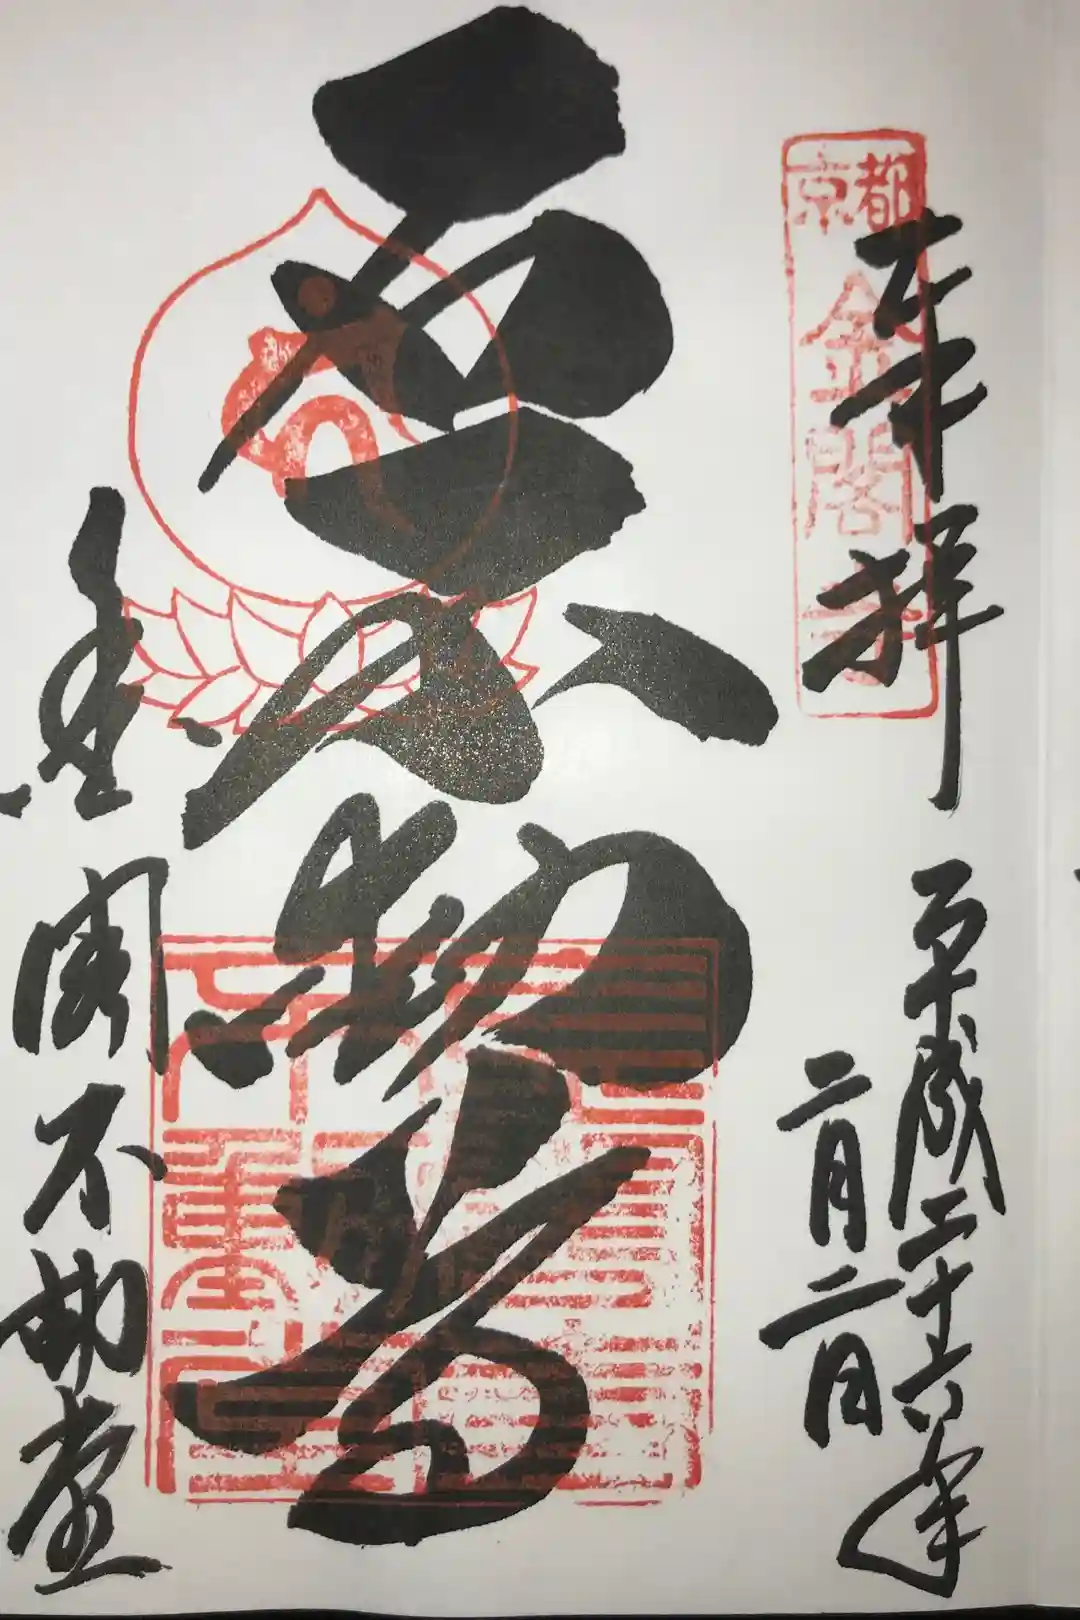 京都
金閣寺
奉拝
平成二十六年
二月二日
石不動尊
金閣不動堂